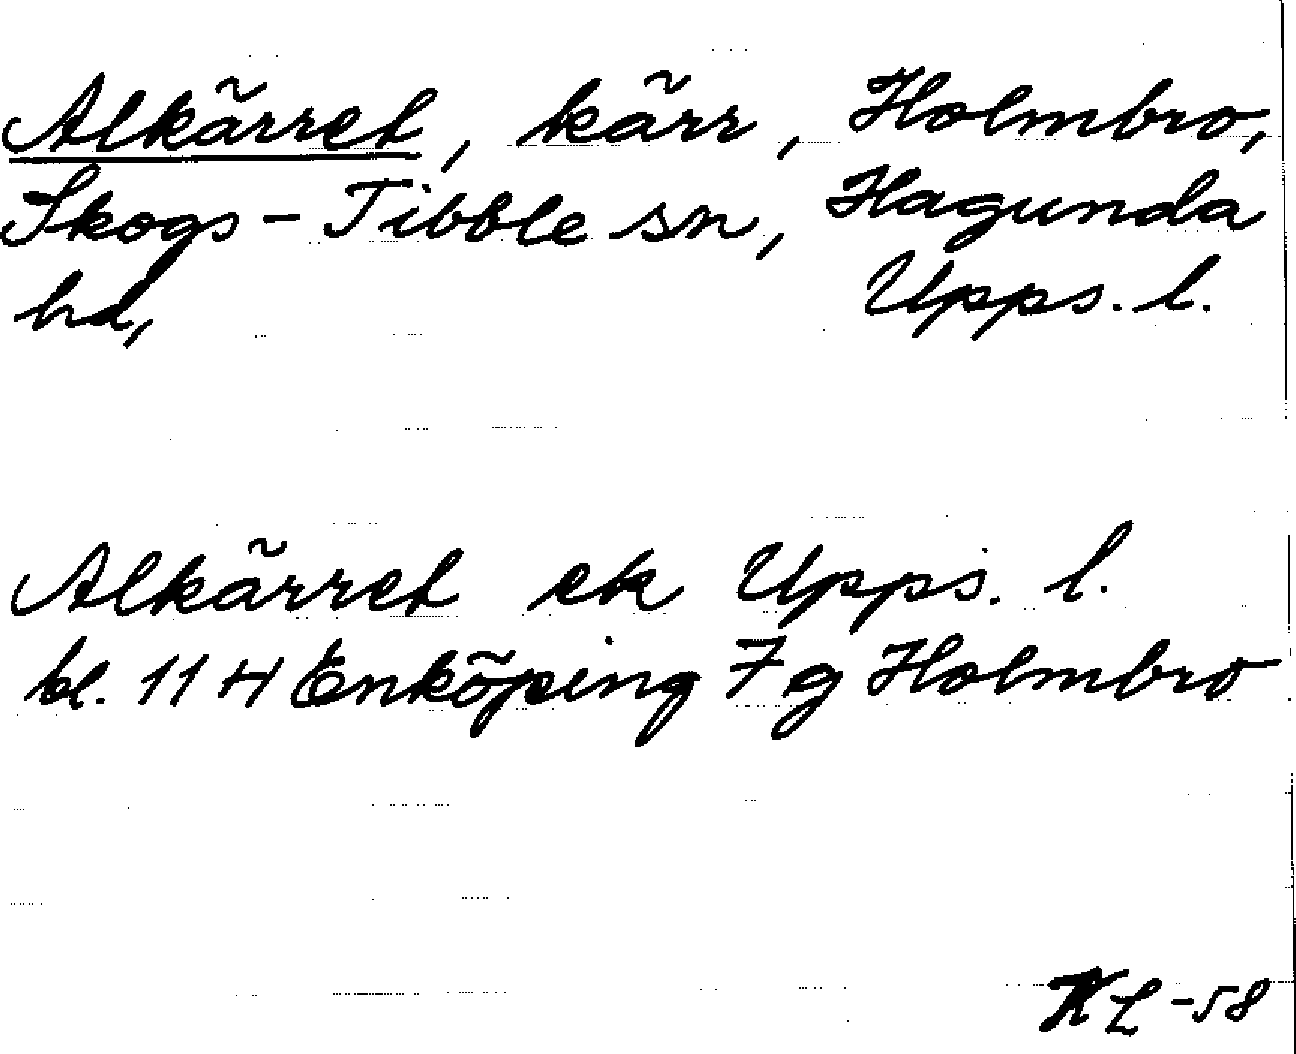 Alkärret, kärr, Holmbro,
Skogs-Tibble sn, Hagunda
hd, Upps. l.
Alkärret ek Upps. l.
bl. 11 H Enköping 7 g Holmbro
KL -58